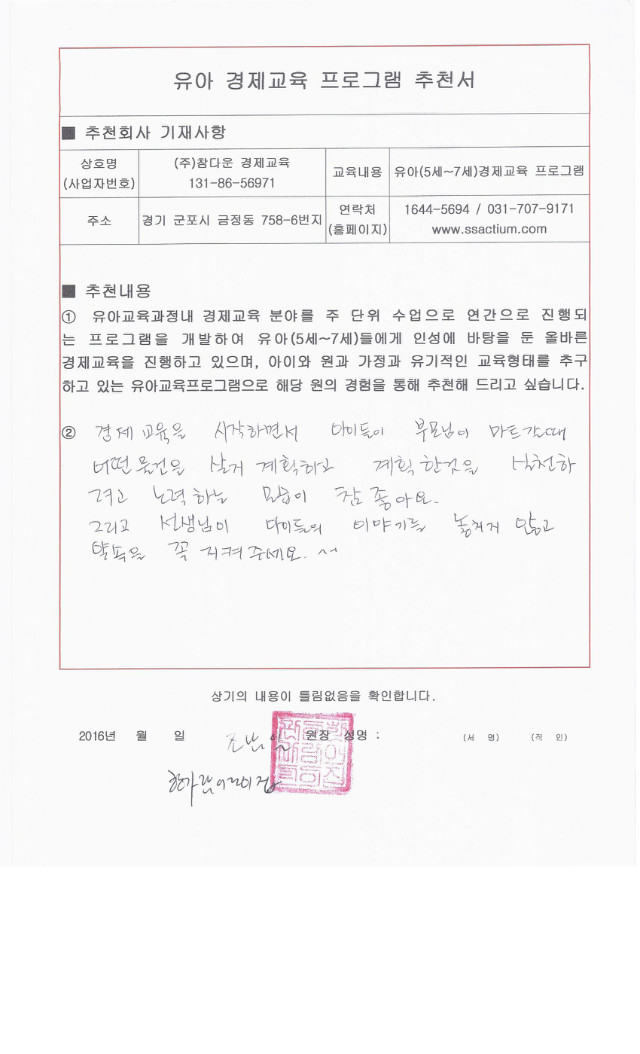 유아 경제교육 프로그램 추천서
■ 추천회사 기재사항
상호명
(사업자번호)
(주)참다운 경제교육
131-86-56971
교육내용
유아(5세~7세)경제교육 프로그램
주소
경기 군포시 금정동 758-6번지
연락처
(홈페이지)
1644-5694 / 031-707-9171
www.ssactium.com
■ 추천내용
① 유아교육과정내 경제교육 분야를 주 단위 수업으로 연간으로 진행되
는 프로그램을 개발하여 유아(5세~7세)들에게 인성에 바탕을 둔 올바른
경제교육을 진행하고 있으며, 아이와 원과 가정과 유기적인 교육형태를 추구
하고 있는 유아교육프로그램으로 해당 원의 경험을 통해 추천해 드리고 싶습니다.
② 경제 교육을 시작하면서 아이들이 부모님이 마트갈때
어떤 물건을 살지 계획하고 계획한것을 실천하
려고 노력하는 모습이 참 좋아요.
그리고 선생님이 아이들의 이야기를 놓치지 않고
약속을 꼭 지켜주세요. ^^
상기의 내용이 틀림없음을 확인합니다.
2016년 월 일 원장 성명 : (서 명) (직 인)
어린이집